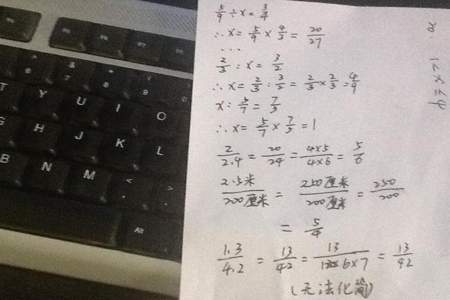 5/9 ÷ x = 3/4
∴ x = 5/9 × 4/3 = 20/27
...
2/3 : x = 3/2
∴ x = 2/3 : 3/2 = 2/3 × 2/3 = 4/9
x : 5/7 = 7/5
∴ x = 5/7 × 7/5 = 1
2/2.4 = 20/24 = 4×5/4×6 = 5/6
2.5米/200厘米 = 250厘米/200厘米 = 250/200
= 5/4
1.3/4.2 = 13/42 = 13/6×7 = 13/42
(无法化简)
T
Y
U
I
O
G
H
J
K
L
B
N
M
<
>
Alt